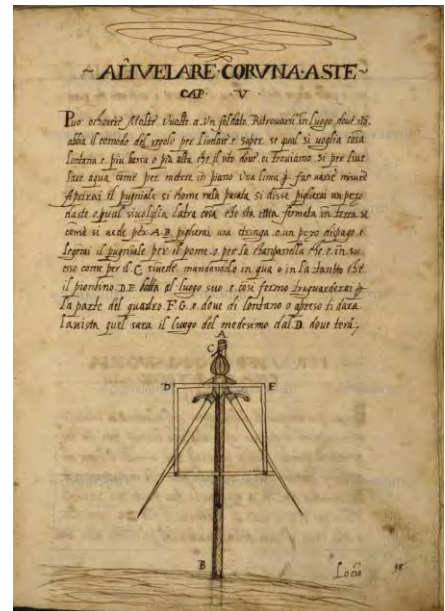 ~ ALIVELARE·CORVNA·ASTE ~
CAP· V·
Puo ochorere Molte Vuolte a Vn soldato Ritrovarsi in Luogo dove no
abbia il comodo del regolo per Livelare e saper se qual si voglia cosa
lontana e piu bassa o piu alta che il sito dove ci troviamo si per live
lare aqua come per metere in piano Vna lima p far varie misure
Aprirai il pugniale si chome nela pasata si disse pigliarai un pezo
daste o qual sivoliglia altra cosa che stia ritta fermata in terra si
come si vede per A.B. pigliarai una stringa o un pezo dispago e
Legerai il pugnijale per il pome o per la champanella che e in su
esso come per il C. si vede mandandolo in qua o in la tanto che
il pionbino D.E. batta al luogo suo e cosi fermo traguarderai p
la parte del quadro F.G. e dove di lontano o apreso ti dara
la vista quel sara il luogo del medesimo dal D dove tera
A
C
D F
B
Locio